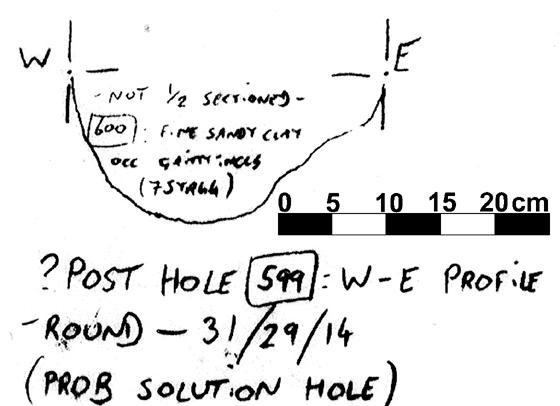 W E
- NOT 1/2 SECTIONED -
600 : FINE SANDY CLAY
OCC GRITTY INCLS
0 5 10 15 20 cm
? POST HOLE 599 : W - E PROFILE
- ROUND - 31/29/14
(PROB SOLUTION HOLE)